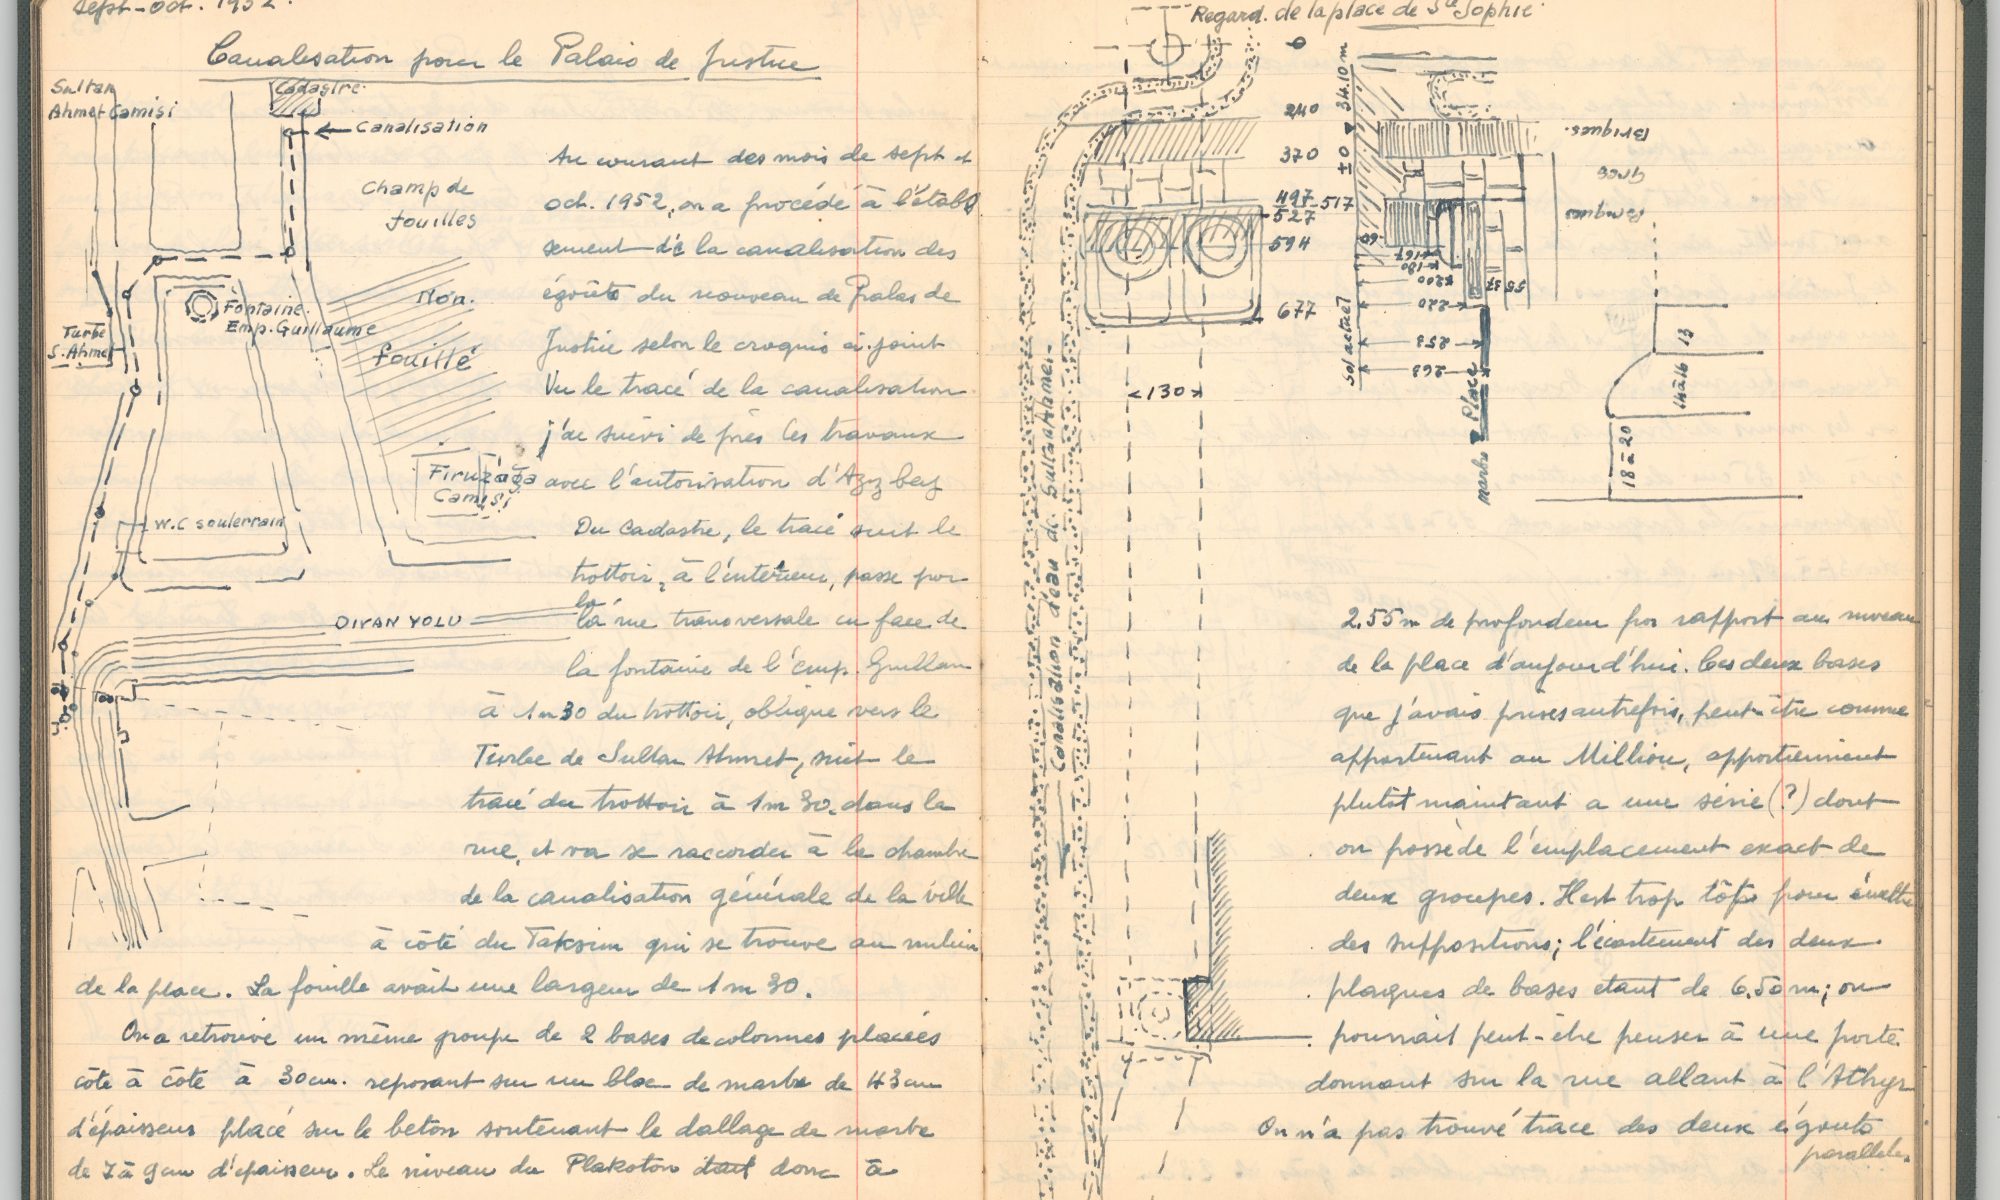 Sept-oct. 1952.
Canalisation pour le Palais de Justice
Sultan
Ahmet Camisi
Cadastre.
Canalisation
Champ de
fouilles
Non.
fouillé
Fontaine.
Emp. Guillaume
Turbe
S. Ahmet
Firuzağa
Camisi
W.C souterrain
DIVAN YOLU
Au courant des mois de sept et
oct. 1952, on a procédé à l'établis
sement de la canalisation des
égoûts du nouveau de Palas de
Justice selon le croquis ci-joint
Vu le tracé de la canalisation
j'ai suivi de près les travaux
avec l'autorisation d'Aziz bey
Du Cadastre, le tracé suit le
trottoir, à l'intérieur, passe par
la
la rue transversale en face de
la fontaine de l'emp. Guillau
à 1m30 du trottoir, oblique vers le
Turbe de Sultan Ahmet, suit le
tracé du trottoir à 1m30 dans la
rue, et va se raccorder à la chambre
de la canalisation générale de la ville
à côté du Taksim qui se trouve au milieu
de la place. La fouille avait une largeur de 1m30.
On a retrouvé un même groupe de 2 bases de colonnes placées
côte à côte à 30cm. reposant sur un bloc de marbre de 43cm
d'épaisseur placé sur le béton soutenant le dallage de marbre
de 7 à 9cm d'épaisseur. Le niveau du Plakoton était donc à
Regard. de la place de Ste Sophie.
0
240
370
497-517
527
594
677
130
±0 ▼ 34.10 m
Briques.
Groc
Briques
60
167
180
200
220
253
263
37
55
Sol actuel
marbre ▼ Place
13
14 à 16
18 à 20
Canalisation d'eau de Sultan Ahmet.
2.55m de profondeur par rapport au niveau
de la place d'aujourd'hui. Ces deux bases
que j'avais prises autrefois, peut-être comme
appartenant au Million, appartiennent
plutôt maintant a une série (?) dont
on possède l'emplacement exact de
deux groupes. Il est trop tôt pour émettre
des suppositions; l'écartement des deux
plaques de bases étant de 6.50m; on
pourrait peut-être penser à une porte
donnant sur la rue allant à l'Athyr
On n'a pas trouvé trace des deux égouts
parallèles.